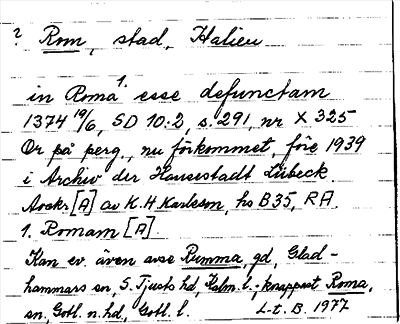 ? Rom, stad, Italien
in Roma 1. esse defunctam
1374 19/6, SD 10:2, s. 291, nr X 325
Or på perg., nu förkommet, före 1939
i Archiv der Hansestadt Lübeck.
Avskr. [A] av K.H Karlsson, hs B35, RA.
1. Romam [A].
Kan ev. även avse Rumma, gd, Glad-
hammars sn, S. Tjusts hd, Kalm. l.; knappast Roma,
sn, Gotl. n. hd, Gotl. l. L-t. B. 1977